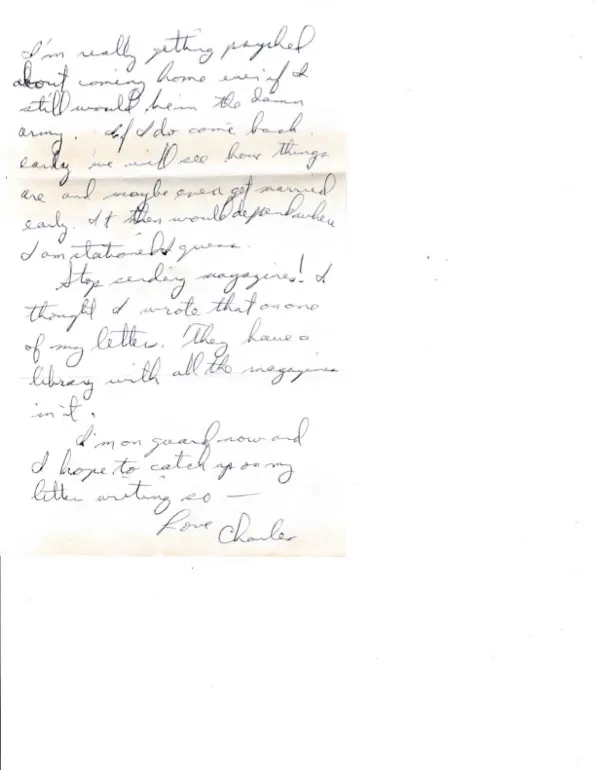 I'm really getting psyched
about coming home even if I
still would be in the damn
army. If I do come back
early we will see how things
are and maybe even get married
early. It then would depend where
I am stationed I guess.
Stop sending magazines! I
thought I wrote that on one
of my letters. They have a
library with all the magazines
in it.
I'm on guard now and
I hope to catch up on my
letter writing so —
Love Charles